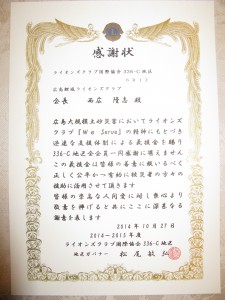 感謝状
ライオンズクラブ国際協会 336-C地区
広島 ライオンズクラブ
会長 西広 隆志 殿
広島大規模土砂災害においてライオンズ
クラブ『We Serve』の精神にもとづき
迅速な支援体制による義援金を賜り
336-C地区全会員一同感謝に堪えません
この義援金は皆様の善意に報いるべく
正しく公平かつ有効に被災者の方々の
援助に活用させて頂きます
皆様の崇高な人間愛に対し衷心より
敬意を捧げると共にここに深甚なる
謝意を表します
2014年10月27日
2014~2015年度
ライオンズクラブ国際協会336-C地区
地区ガバナー 松尾 敏弘